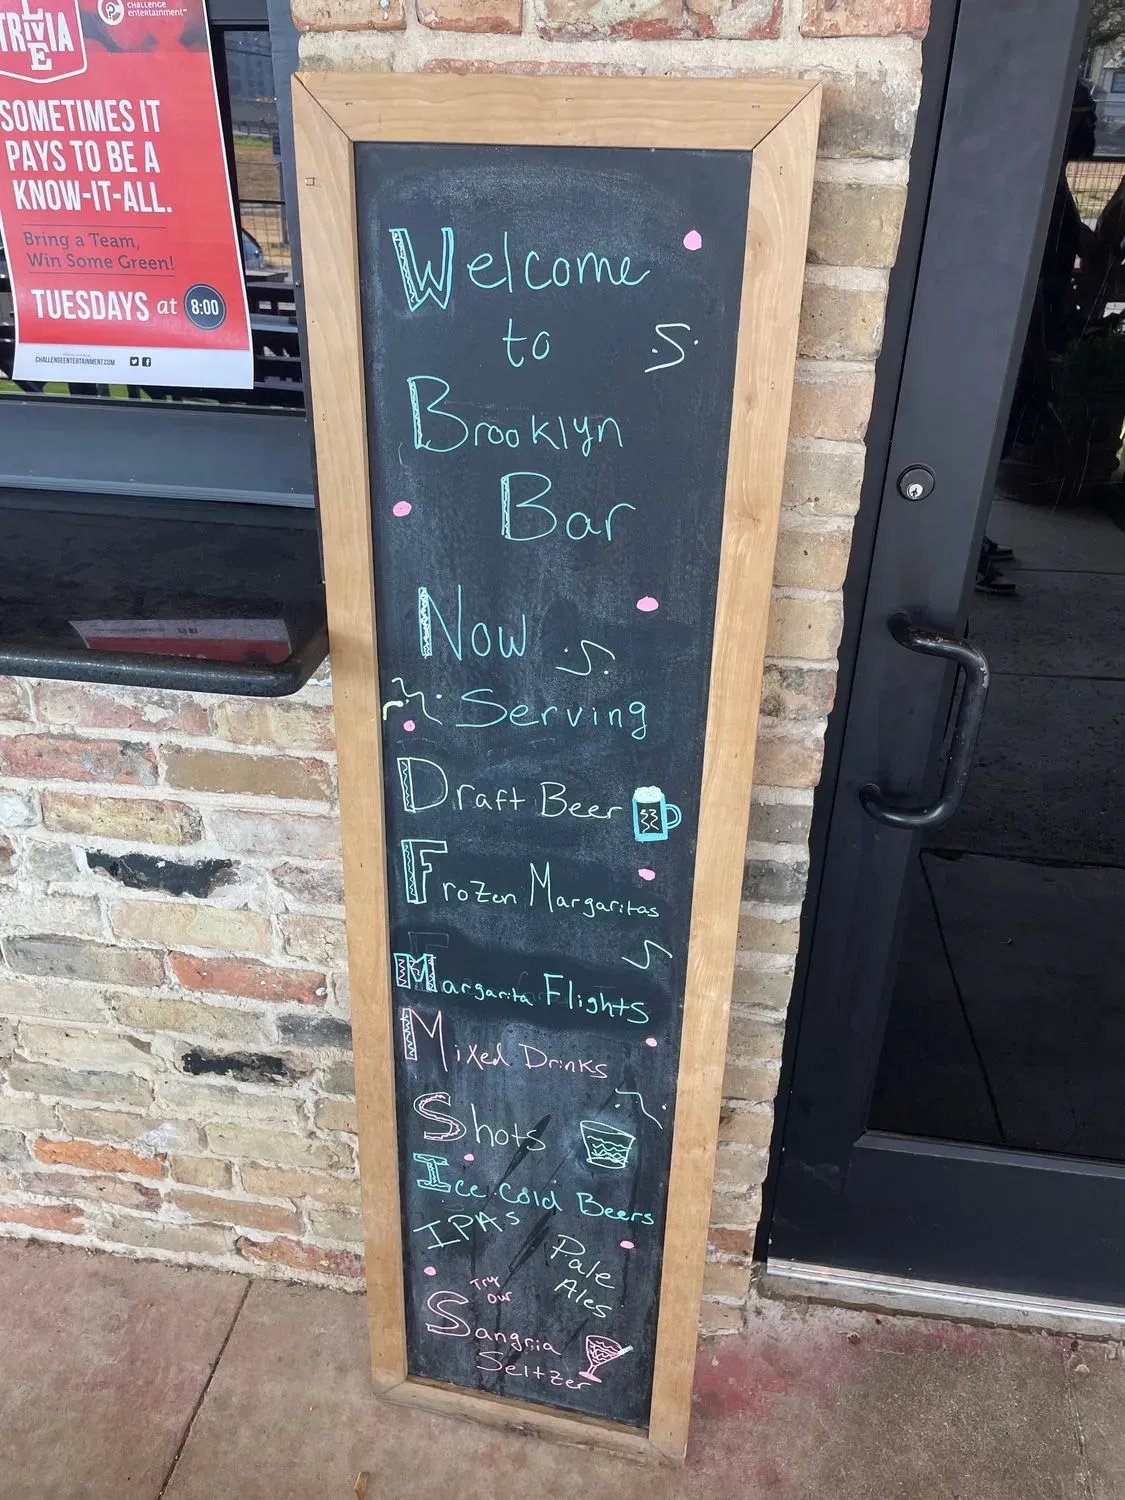 LIVE
TRIVIA
CHALLENGE
entertainment
SOMETIMES IT
PAYS TO BE A
KNOW-IT-ALL.
Bring a Team,
Win Some Green!
TUESDAYS at 8:00
CHALLENGEENTERTAINMENT.COM
Welcome
to
Brooklyn
Bar
Now
Serving
Draft Beer
Frozen Margaritas
Margarita Flights
Mixed Drinks
Shots
Ice Cold Beers
IPAs
Pale
Ales
Try
our
Sangria
Seltzer